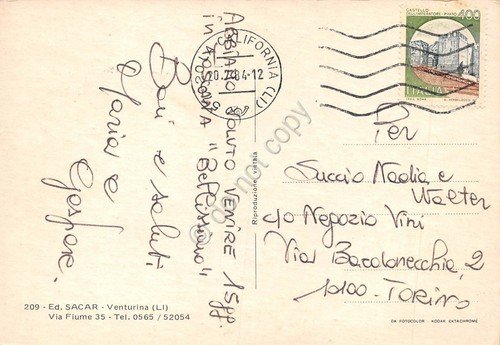 ABBIAMO VOLUTO VENIRE 15 gg.
in TOSCANA "Bellissimo"
Baci e saluti
Maria e
Gaspare.
209 - Ed. SACAR - Venturina (LI)
Via Fiume 35 - Tel. 0565 / 52054
Riproduzione vietata
CALIFORNIA (LI)
20.7.84-12
CASTELLO
DELL'IMPERATORE - PRATO
400
ITALIA
Per
Succio Nadia e
Walter
c/o Negozio Vini
Via Bacolonecchie, 2
10100 - TORINO
DA FOTOCOLOR - KODAK EKTACHROME
do not copy